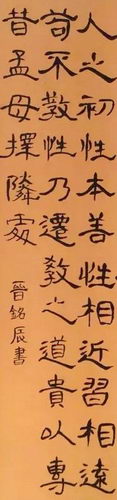 人之初性本善性相近習相遠
苟不教性乃遷教之道貴以專
昔孟母擇隣處
晉銘辰書